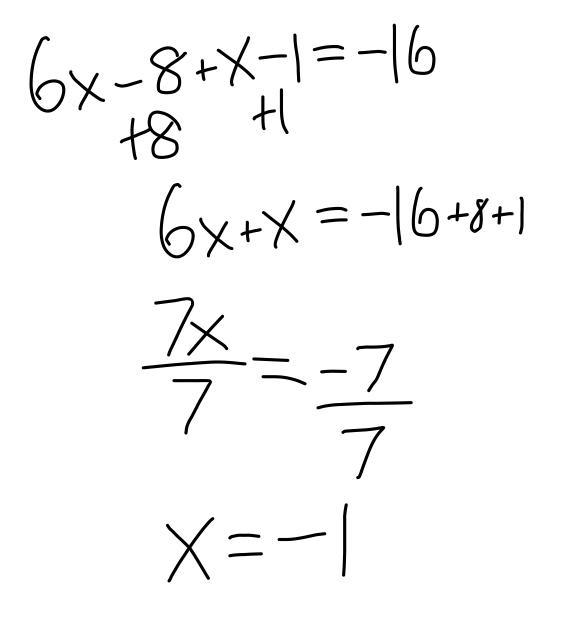 6x-8+x-1=-16
+8 +1
6x+x=-16+8+1
7x/7=-7/7
x=-1